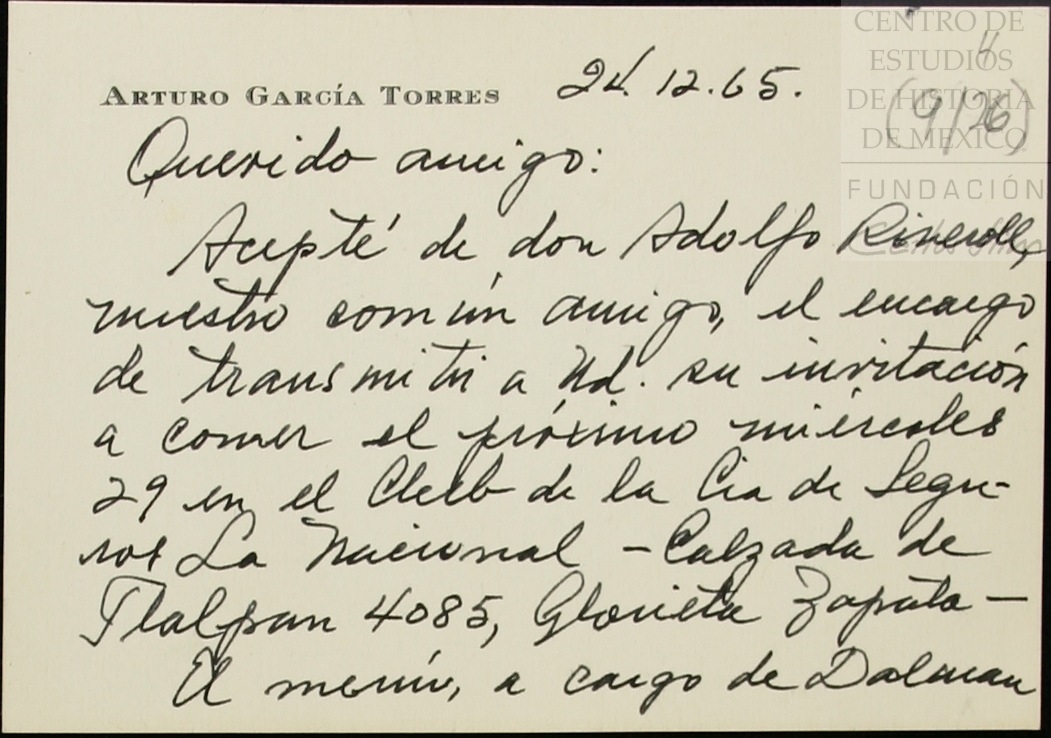 CENTRO DE
ESTUDIOS
DE HISTORIA
DE MÉXICO
FUNDACIÓN
ARTURO GARCÍA TORRES 24.12.65.
(9/26)
Querido amigo:
Acepté de don Adolfo Riveroll,
nuestro común amigo, el encargo
de transmitir a Ud. su invitación
a comer el próximo miércoles
29 en el Club de la Cia de Segu-
ros La Nacional - Calzada de
Tlalpan 4085, Glorieta Zapata -
El menú, a cargo de Dalmau